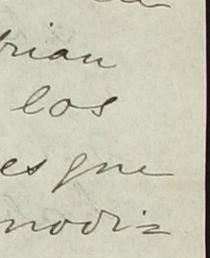 rian
los
es que
modiz